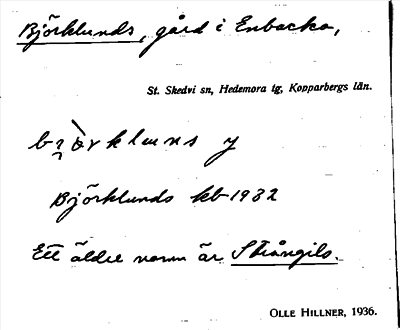 Björklunds, gård i Enbacka,
St. Skedvi sn, Hedemora tg, Kopparbergs län.
y
Björklunds kb 1932
Ett äldre namn är Strångils.
OLLE HILLNER, 1936.